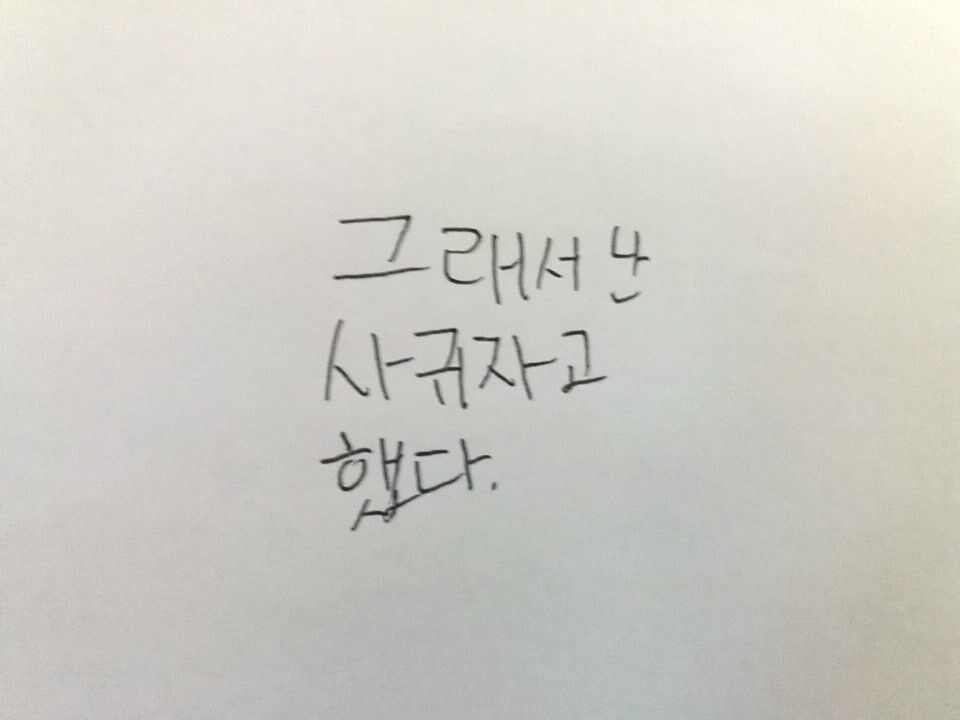 그래서 난
사귀자고
했다.